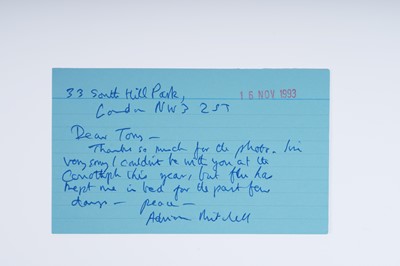 33 South Hill Park,
15 NOV 1993
London NW3 2ST
Dear Tony —
Thanks so much for the photo. I'm
very sorry I couldn't be with you at the
Cenotaph this year, but flu has
kept me in bed for the past few
days — peace —
Adrian Mitchell